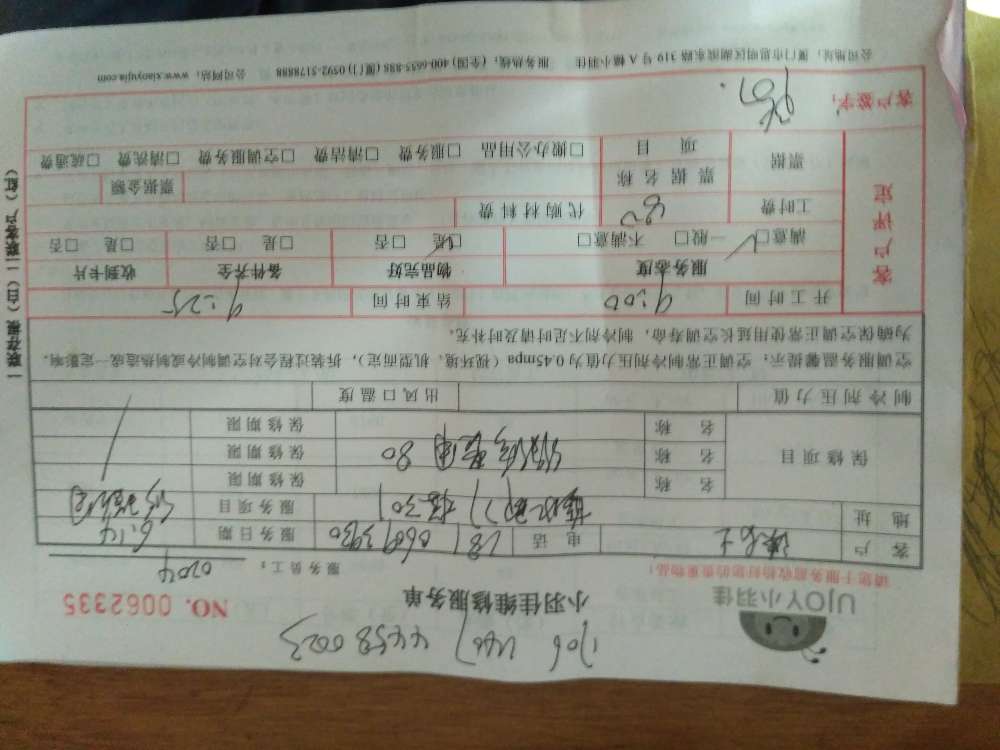 UJOY小羽佳
小羽佳维修服务单
NO. 0062335
请您于服务前收拾好您的贵重物品！
服务员工： 0204
客户 电话 服务日期 6.14
地址 服务项目
保修项目 名称 保修期限
名称 80 保修期限
名称 保修期限
制冷剂压力值 出风口温度
空调服务温馨提示：空调正常制冷剂压力值为0.45mpa（视环境、机型而定），拆装过程会对空调制冷或制热造成一定影响，
为确保空调正常使用延长空调寿命，制冷剂不足时请及时补充。
开工时间 9:00 结束时间 9:25
客户评定
服务态度 物品完好 备件齐全 收到卡片
满意□ 一般□ 不满意□ □是 □否 □是 □否 □是 □否
工时费 80 代购材料费
票据 票据名称 票据金额
项目 □办公用品 □服务费 □清洁费 □空调服务费 □清洗费 □疏通费
客户签字：
公司地址：厦门市思明区湖滨东路319号A幢小羽佳 服务热线：（全国）400-6655-888（厦门）0592-5178888 公司网站：www.xiaoyujia.com
一联存根（白）二联客户（红）